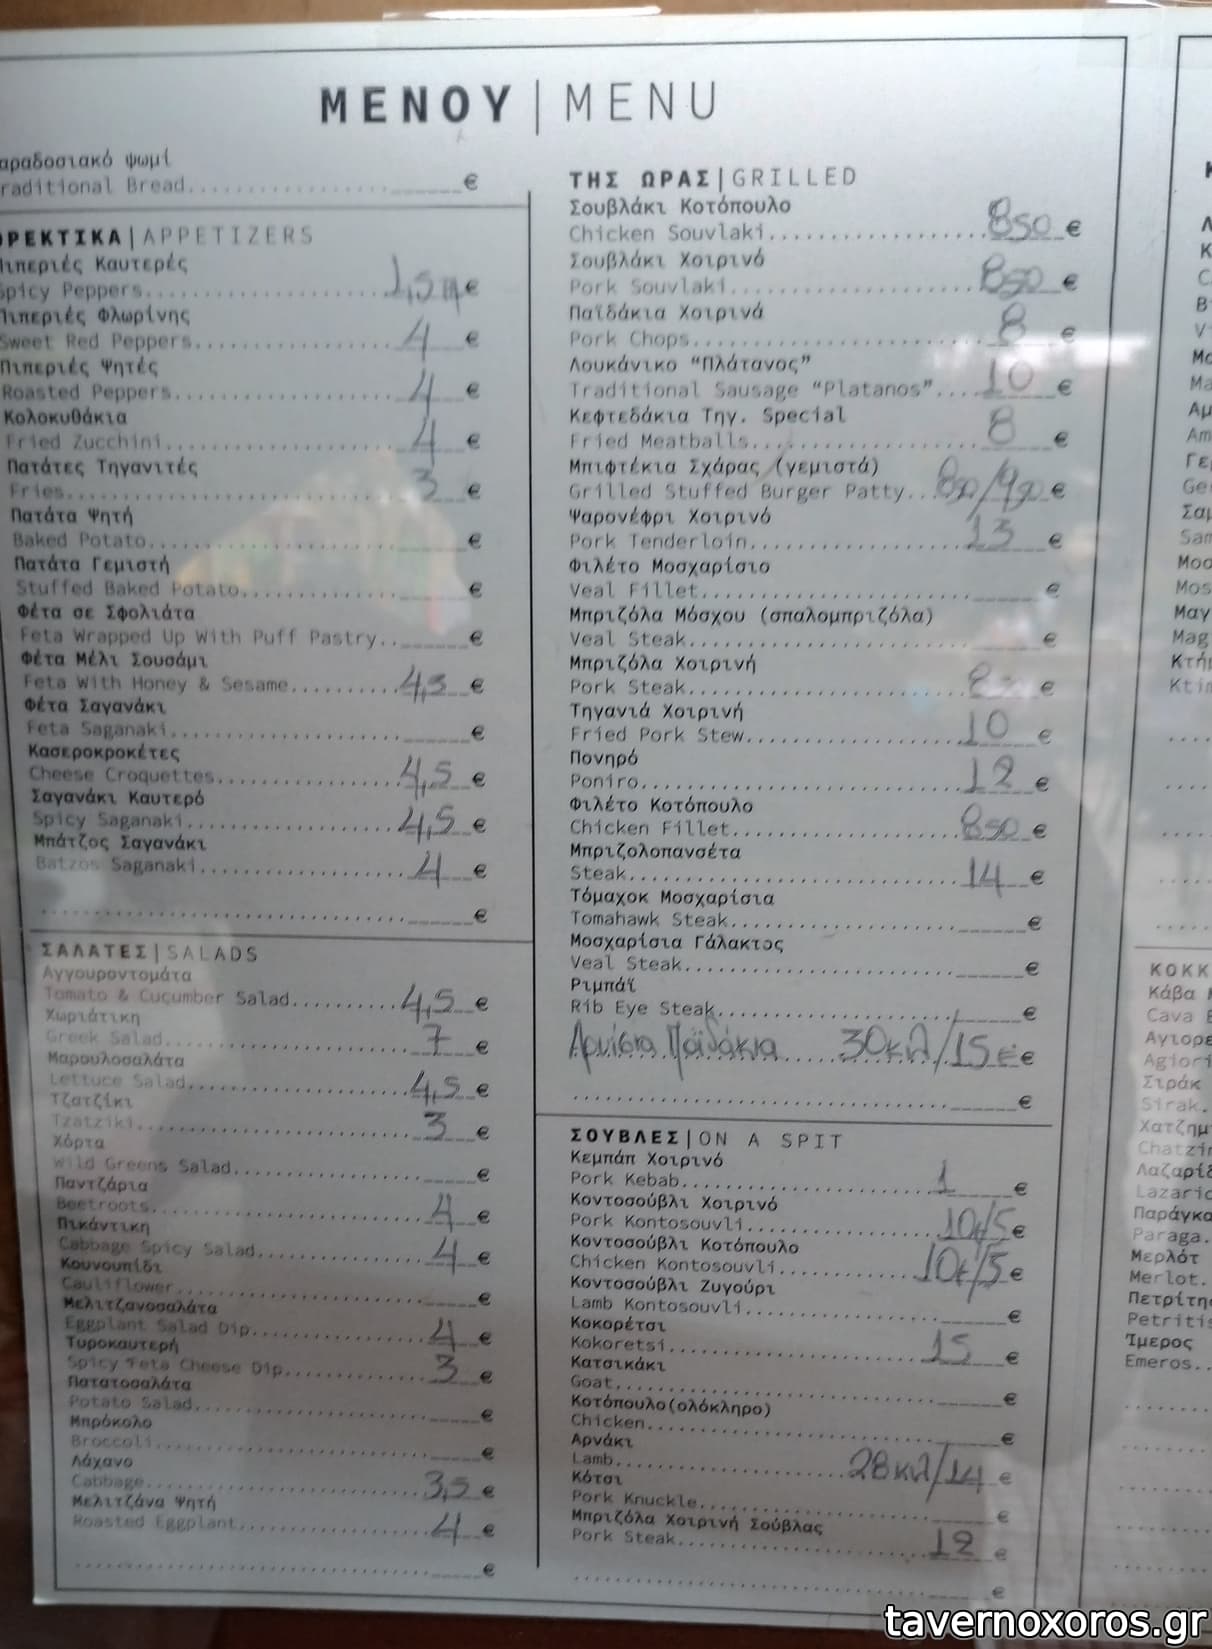 ΜΕΝΟΥ|MENU
αραδοσιακό ψωμί
raditional Bread.....€
ΟΡΕΚΤΙΚΑ|APPETIZERS
Πιπεριές Καυτερές
Spicy Peppers.....€
Πιπεριές Φλωρίνης
Sweet Red Peppers.....4 €
Πιπεριές Ψητές
Roasted Peppers.....4 €
Κολοκυθάκια
Fried Zucchini.....4 €
Πατάτες Τηγανιτές
Fries.....3 €
Πατάτα Ψητή
Baked Potato.....€
Πατάτα Γεμιστή
Stuffed Baked Potato.....€
Φέτα σε Σφολιάτα
Feta Wrapped Up With Puff Pastry.....€
Φέτα Μέλι Σουσάμι
Feta With Honey & Sesame.....€
Φέτα Σαγανάκι
Feta Saganaki.....€
Κασεροκροκέτες
Cheese Croquettes.....4,5 €
Σαγανάκι Καυτερό
Spicy Saganaki.....4,5 €
Μπάτζος Σαγανάκι
Batzos Saganaki.....4 €
.....€
ΣΑΛΑΤΕΣ|SALADS
Αγγουροντομάτα
Tomato & Cucumber Salad.....4,5 €
Χωριάτικη
Greek Salad.....7 €
Μαρουλοσαλάτα
Lettuce Salad.....4,5 €
Τζατζίκι
Tzatziki.....3 €
Χόρτα
Wild Greens Salad.....€
Παντζάρια
Beetroots.....4 €
Πικάντικη
Cabbage Spicy Salad.....4 €
Κουνουπίδι
Cauliflower.....€
Μελιτζανοσαλάτα
Eggplant Salad Dip.....4 €
Τυροκαυτερή
Spicy Feta Cheese Dip.....3 €
Πατατοσαλάτα
Potato Salad.....€
Μπρόκολο
Broccoli.....€
Λάχανο
Cabbage.....3,5 €
Μελιτζάνα Ψητή
Roasted Eggplant.....4 €
.....€
ΤΗΣ ΩΡΑΣ|GRILLED
Σουβλάκι Κοτόπουλο
Chicken Souvlaki.....850 €
Σουβλάκι Χοιρινό
Pork Souvlaki.....850 €
Παϊδάκια Χοιρινά
Pork Chops.....8 €
Λουκάνικο "Πλάτανος"
Traditional Sausage "Platanos".....10 €
Κεφτεδάκια Τηγ. Special
Fried Meatballs.....8 €
Μπιφτέκια Σχάρας (γεμιστά)
Grilled Stuffed Burger Patty.....850/950 €
Ψαρονέφρι Χοιρινό
Pork Tenderloin.....13 €
Φιλέτο Μοσχαρίσιο
Veal Fillet.....€
Μπριζόλα Μόσχου (σπαλομπριζόλα)
Veal Steak.....€
Μπριζόλα Χοιρινή
Pork Steak.....€
Τηγανιά Χοιρινή
Fried Pork Stew.....10 €
Πονηρό
Poniro.....12 €
Φιλέτο Κοτόπουλο
Chicken Fillet.....850 €
Μπριζολοπανσέτα
Steak.....14 €
Τόμαχοκ Μοσχαρίσια
Tomahawk Steak.....€
Μοσχαρίσια Γάλακτος
Veal Steak.....€
Ριμπάϊ
Rib Eye Steak.....€
Αρνίσια Παϊδάκια.....30κιλ/15€ €
.....€
ΣΟΥΒΛΕΣ|ON A SPIT
Κεμπάπ Χοιρινό
Pork Kebab.....1 €
Κοντοσούβλι Χοιρινό
Pork Kontosouvli.....€
Κοντοσούβλι Κοτόπουλο
Chicken Kontosouvli.....€
Κοντοσούβλι Ζυγούρι
Lamb Kontosouvli.....€
Κοκορέτσι
Kokoretsi.....15 €
Κατσικάκι
Goat.....€
Κοτόπουλο(ολόκληρο)
Chicken.....€
Αρνάκι
Lamb.....28κιλ/14 €
Κότσι
Pork Knuckle.....€
Μπριζόλα Χοιρινή Σούβλας
Pork Steak.....12 €
.....€
ΚΟΚΚ
Κάβα
Cava
Αγιορε
Agiori
Σιράκ
Sirak.
Χατζημ
Chatzi
Λαζαρίδ
Lazarid
Παράγκα
Paraga.
Μερλότ
Merlot.
Πετρίτης
Petritis
Ίμερος
Emeros..
tavernoxoros.gr